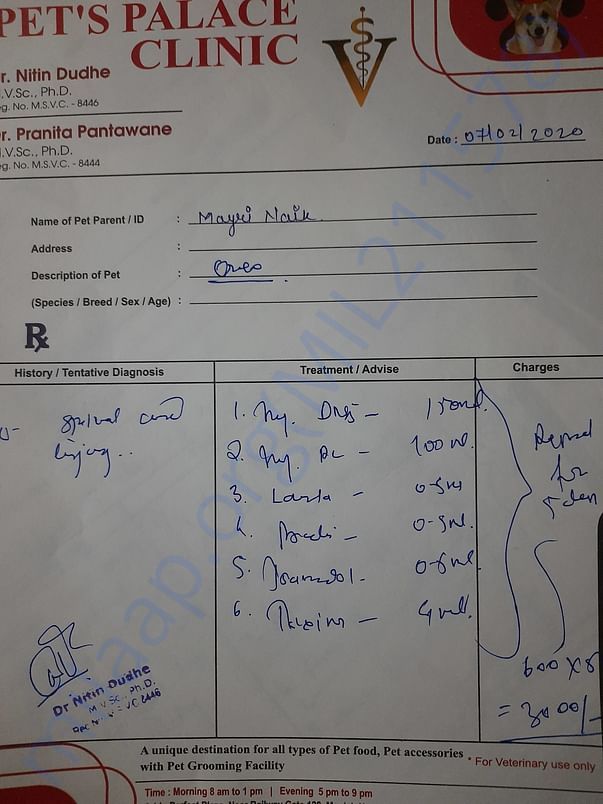 PET'S PALACE
CLINIC
r. Nitin Dudhe
.V.Sc., Ph.D.
eg. No. M.S.V.C. - 8446
r. Pranita Pantawane
.V.Sc., Ph.D.
eg. No. M.S.V.C. - 8444
Date : 07/02/2020
Name of Pet Parent / ID : Mayri Naik
Address :
Description of Pet : Oreo
(Species / Breed / Sex / Age) :
Rx
History / Tentative Diagnosis
Treatment / Advise
Charges
spinal cord
injury..
1. Inj. DNS - 150ml.
2. Inj. RL - 100 ml.
3. - 0.5ml
4. - 0.5ml.
5. - 0.6ml
6. - 4ml.
for
600 X 5
= 3000/-
Dr Nitin Dudhe
M.V.Sc., Ph.D.
8446
A unique destination for all types of Pet food, Pet accessories
with Pet Grooming Facility
* For Veterinary use only
Time : Morning 8 am to 1 pm | Evening 5 pm to 9 pm